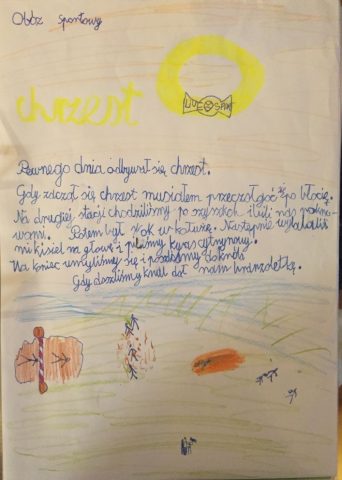 Obóz sportowy
chrzest
Pewnego dnia odbywał się chrzest.
Gdy zdczął się chrzest musiałem przeczołgać się po błocie.
Na drugiej stacji chodziliśmy po szyszkach i bili nas
Potem był skok w kałuże. Następnie wylalali
mi kisiel na głowe i piliśmy kwas cytrynowy.
Na koniec umyliśmy się i poszliśmy do króla
Gdy doszliśmy król dał nam branzoletkę.